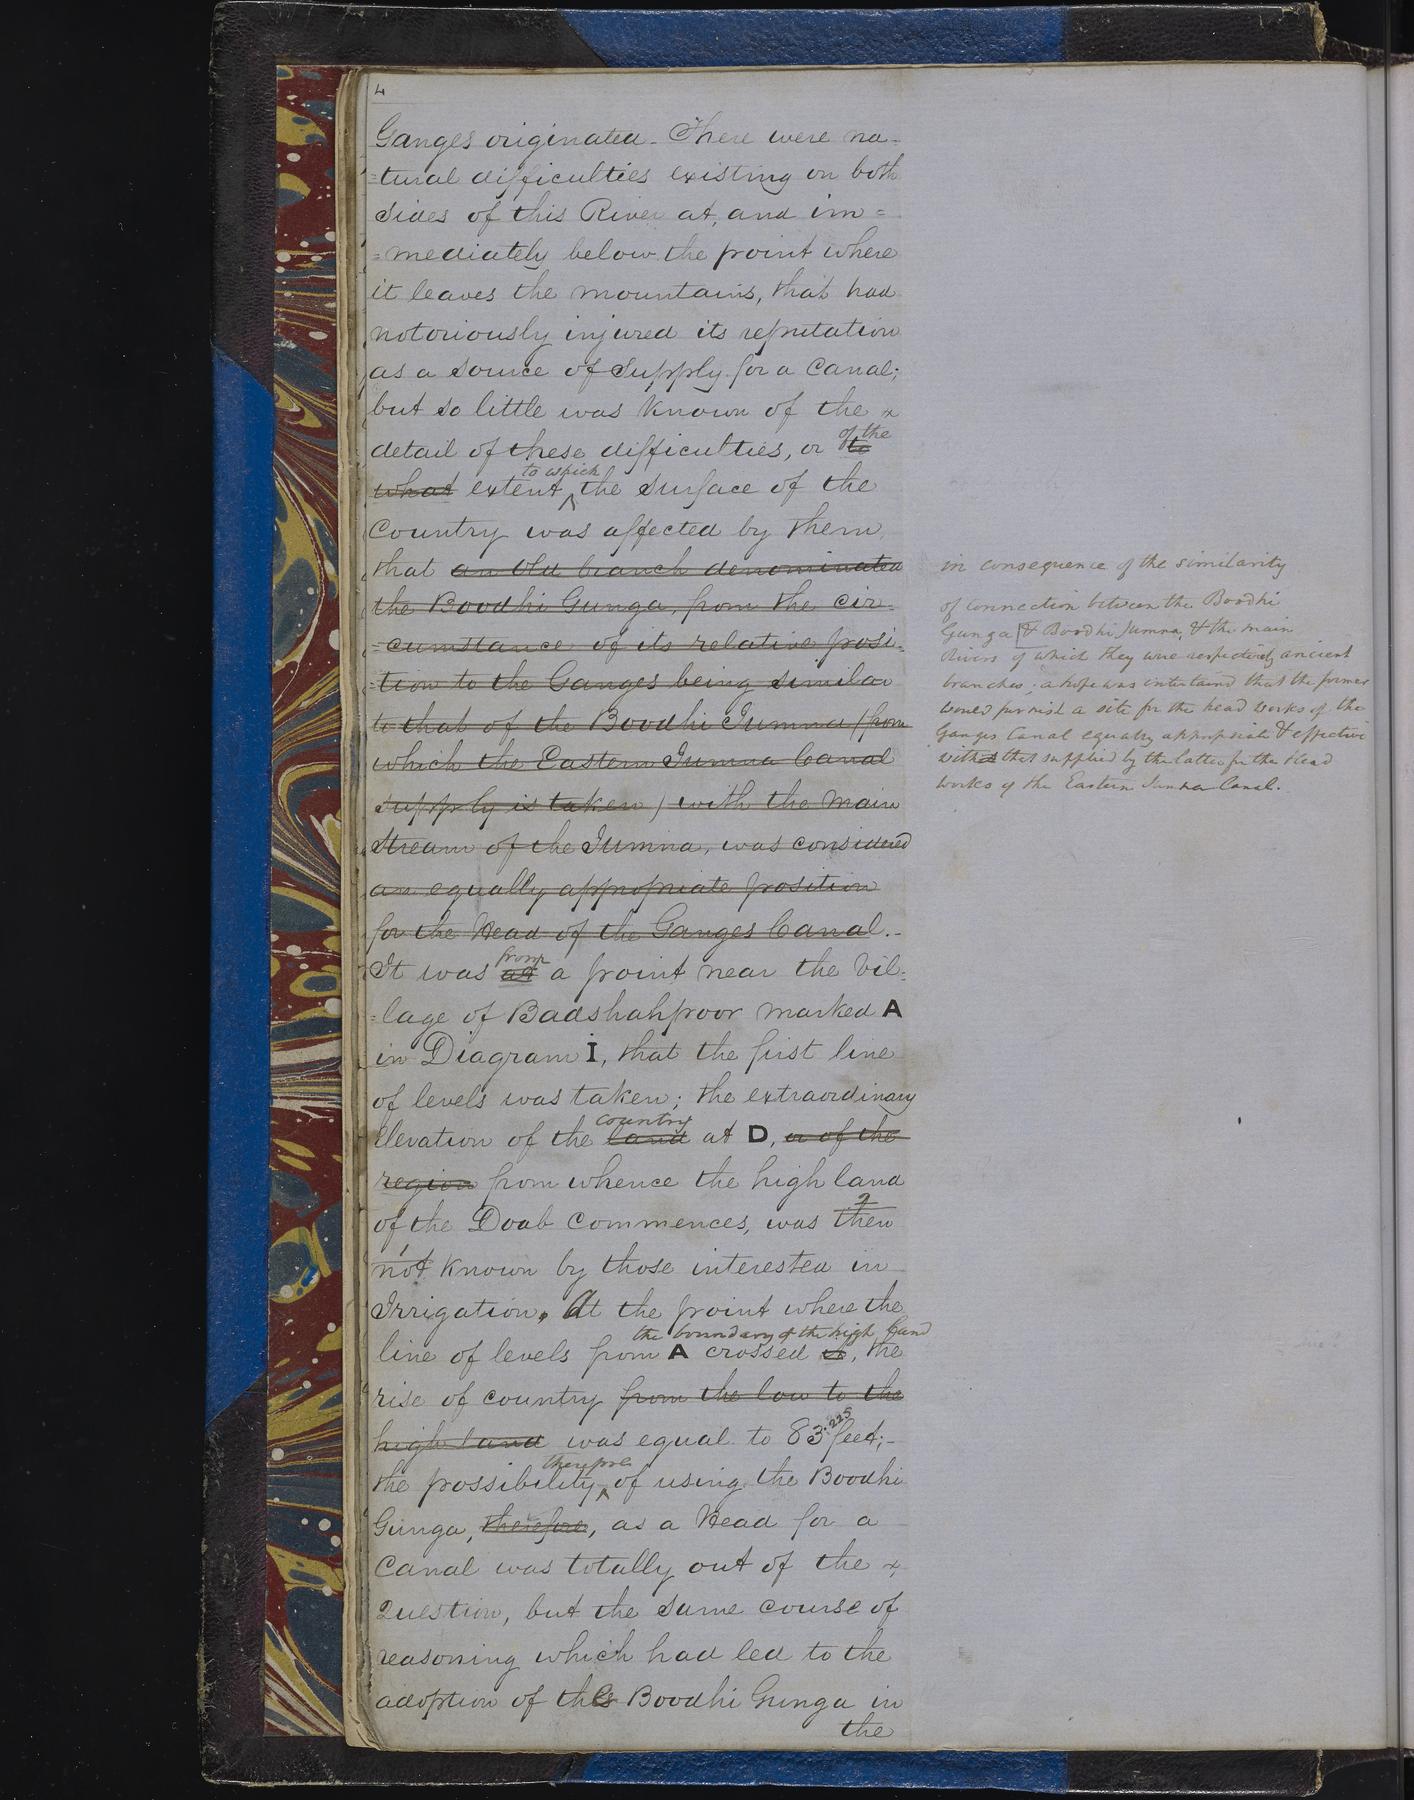 4
Ganges originated. There were na-
=tural difficulties existing on both
sides of this River at, and im=
=mediately below the point where
it leaves the mountains, that had
notoriously injured its reputation
as a source of Supply for a Canal;
but so little was known of the
of the
detail of these difficulties, or to
to which
what extent the surface of the
Country was affected by them
that an old branch denominated
the Boodhi Gunga, from the cir-
=cumstance of its relative posi-
=tion to the Ganges being similar
to that of the Boodhi Jumna (from
which the Eastern Jumna Canal
supply is taken) with the main
stream of the Jumna, was considered
an equally appropriate position
for the Head of the Ganges Canal.-
from
It was at a point near the Vil=
=lage of Badshahpoor marked A
in Diagram I, that the first line
of levels was taken; the extraordinary
country
elevation of the land at D, or of the
region from whence the high land
2
of the Doab Commences, was then
1
not known by those interested in
Irrigation. At the point where the
the boundary of the high land
line of levels from A crossed it, the
rise of country from the low to the
high land was equal to 83.225 feet;-
therefore
the possibility of using the Boodhi
Gunga, therefore, as a Head for a
Canal was totally out of the
Question, but the same course of
reasoning which had led to the
adoption of the Boodhi Gunga in
the
in consequence of the similarity
of connection between the Boodhi
Gunga & Boodhi Jumna, & the main
Rivers of which they were respectively ancient
branches; a hope was intertaind that the former
would furnish a site for the head works of the
Ganges Canal equally appropriate & effective
with that supplied by the latter for the Head
works of the Eastern Jumna Canal.